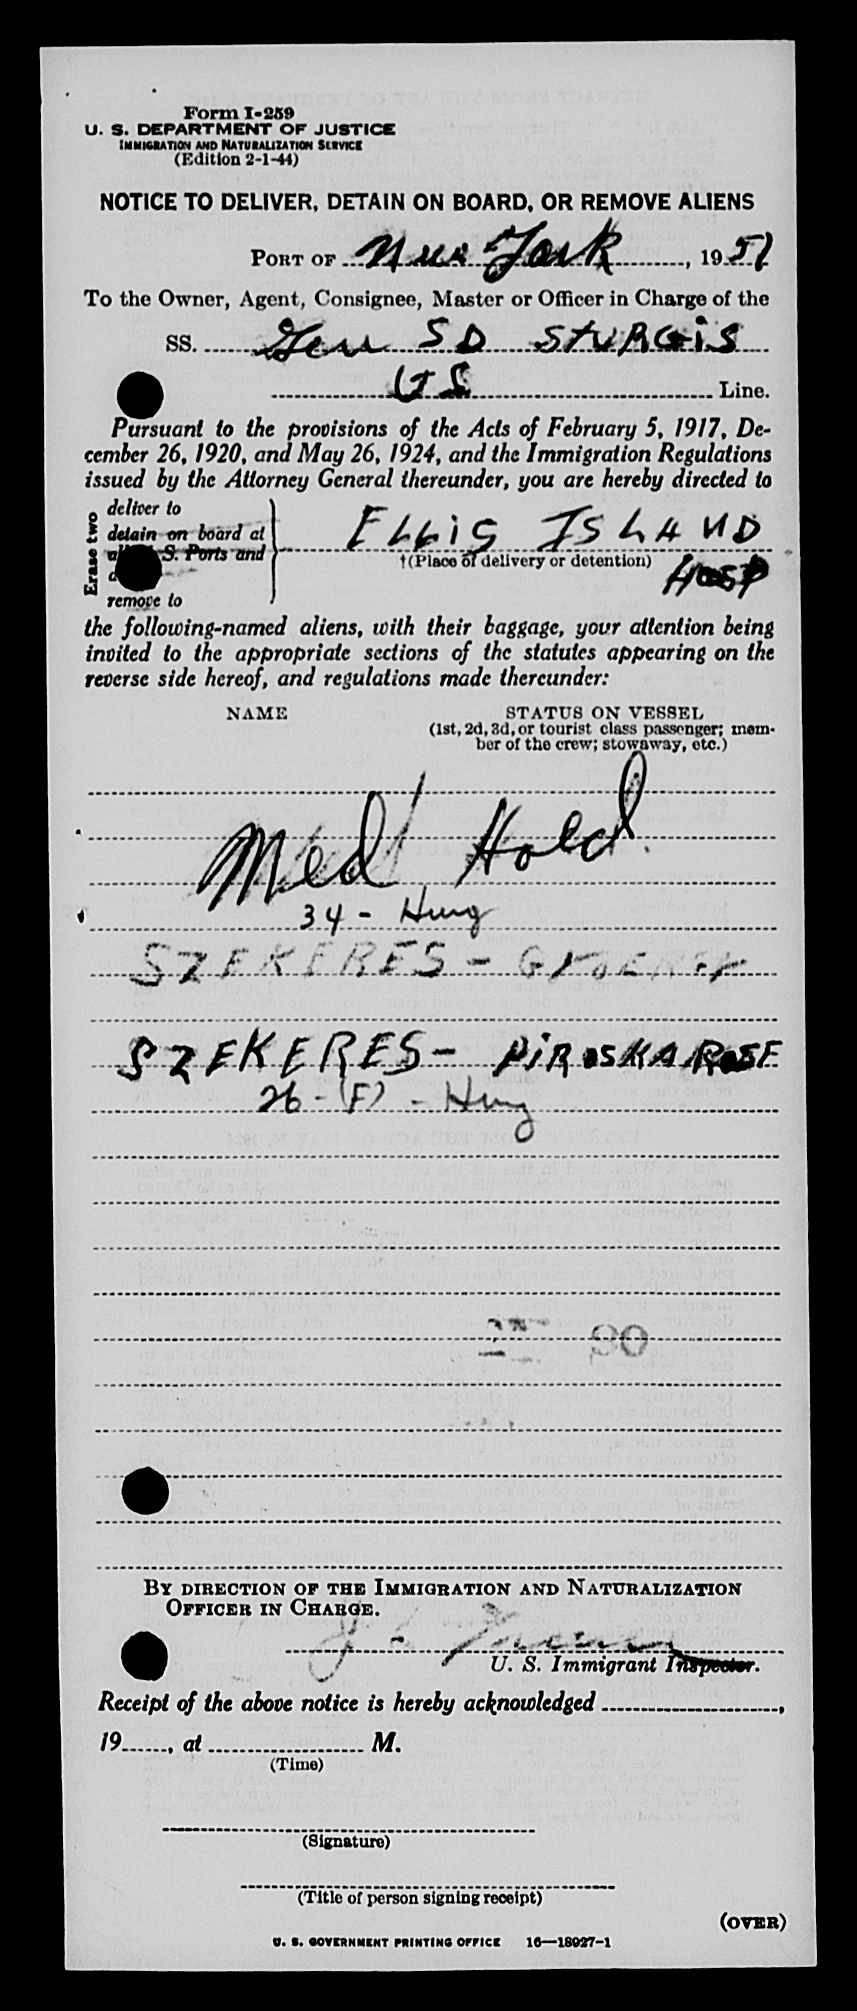 Form I-259
U. S. DEPARTMENT OF JUSTICE
IMMIGRATION AND NATURALIZATION SERVICE
(Edition 2-1-44)
NOTICE TO DELIVER, DETAIN ON BOARD, OR REMOVE ALIENS
PORT OF New York, 1951
To the Owner, Agent, Consignee, Master or Officer in Charge of the
SS. Gen S D STURGIS
US Line.
Pursuant to the provisions of the Acts of February 5, 1917, De-
cember 26, 1920, and May 26, 1924, and the Immigration Regulations
issued by the Attorney General thereunder, you are hereby directed to
Erase two
deliver to
detain on board at
S. Ports and
remove to
ELLIS ISLAND
†(Place of delivery or detention)
HOSP
the following-named aliens, with their baggage, your attention being
invited to the appropriate sections of the statutes appearing on the
reverse side hereof, and regulations made thereunder:
NAME STATUS ON VESSEL
(1st, 2d, 3d, or tourist class passenger; mem-
ber of the crew; stowaway, etc.)
Med Hold.
34 - Hung
SZEKERES - GYOERGY
SZEKERES - PIROSKA ROSE
26 - (F) - Hung
90
BY DIRECTION OF THE IMMIGRATION AND NATURALIZATION
OFFICER IN CHARGE.
U. S. Immigrant Inspector.
Receipt of the above notice is hereby acknowledged ,
19 , at M.
(Time)
(Signature)
(Title of person signing receipt)
(OVER)
U. S. GOVERNMENT PRINTING OFFICE 16—18927-1